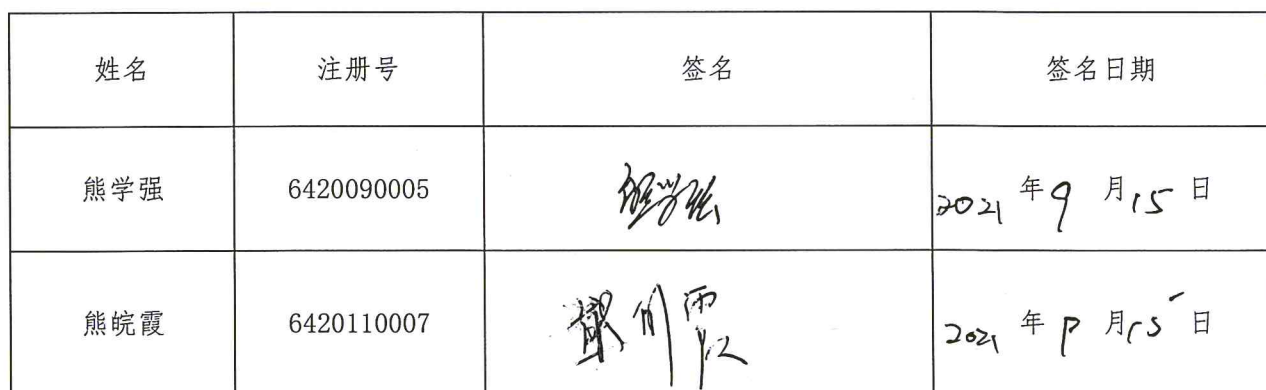 姓名 注册号 签名 签名日期
熊学强 6420090005 熊学强 2021 年 9 月 15 日
熊皖霞 6420110007 2021 年 9 月 15 日